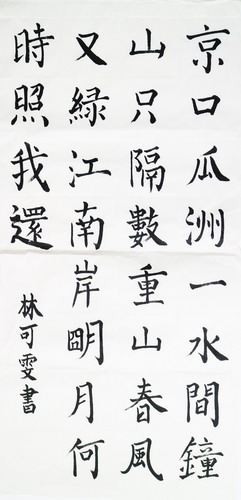 京口瓜洲一水間鐘
山只隔數重山春風
又綠江南岸明月何
時照我還
林可雯書